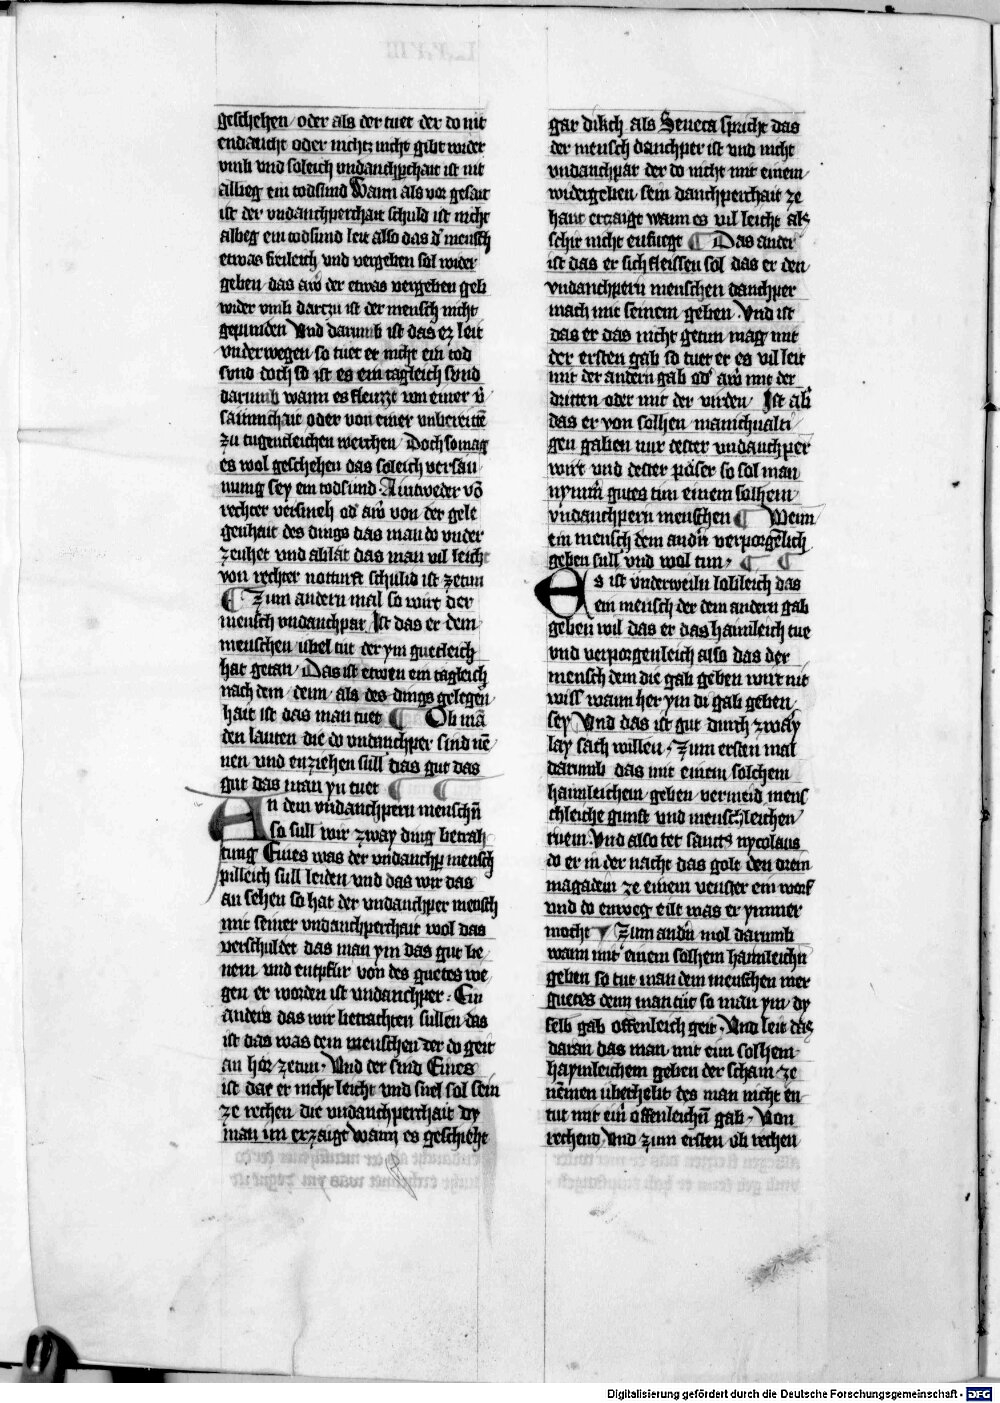 geschehen / oder als der tuet der do nit
endancht oder nichtz nicht gibt wider
vmb vnd soleich vndanchperchait ist nit
allbeg ein todsund Wann als vor gesait
ist der vndanchperchait schuld ist nicht
albeg ein todsund leit also das d' mensch
etwas freileich vnd vergeben sol wider
geben das aw der etwas vergeben geb
wider vmb dartzu ist der mensch nicht
gepunden Vnd darumb ist das er leit
vnderwegen so tuet er nicht ein tod
sond doch so ist es ein tagleich sond
darumb wann es fleuzzt von einer v
saumchait oder von einer vnberaite
zu tugentleichen werchen / Doch so mag
es wol geschehen das soleich versau
nung sey ein todsund · Aintweder vo
rechter versmeh od' aw von der gele
genhait des dings das man do vnder
zeuhet vnd ablat das man vil leicht
von rechter notturft schuldig ist zetun
¶ Zum andern mal so wirt der
mensch vndanchpar Ist das er dem
menschen vbel tut der ym guetleich
hat getan / Das ist etwen ein tagleich
nach dem / denn / als des dings gelegen
hait ist das man tuet ¶ Ob ma
den lauten die do vndanchper sind ne
nen vnd enziehen sull das gut das
gut das man yn tuet ¶ ¶
An dem vndanchpern menschn
so sull wir zway ding betrah
tung Eines was der vndanchper mensch
pilleich sull leiden vnd das wir das
an sehen so hat der vndanchper mensch
mit seiner vndanchperchait wol das
verschuldet das man ym das gut be
nem vnd entpfur von des guetes we
gen er worden ist vndanchper · Ein
anders das wir betrachten sullen das
ist das was dem menschen der do geit
an hor zetun · Vnd der sind Eines
ist das er nicht leicht vnd snel sol sein
ze rechen die vndanchperchait dy
man im erzaigt Wann es geschieht
gar dikch als Seneca spricht das
der mensch danchper ist vnd nicht
vndanchpar der do nicht mit einem
widergeben sein danchperchait ze
hant erzaigt wann es vil leicht als
schir nicht enfuegt ¶ Das ander
ist das er sich fleissen sol das er den
vndanchpern menschen danchper
mach mit seinem geben · Vnd ist
das er das nicht getun mag mit
der ersten gab so tuet er es vil leit
mit der andern gab od' aw mit der
dritten oder mit der virden / Ist ab'
das er von solhen manichualti
gen gaben nur dester vndanchper
wirt vnd dester poser so sol man
nymm gutes tun einem solhem
vndanchpern menschen ¶ Wenn
ein mensch dem andn verporgelich
geben sull vnd wol tun · ¶ ¶
Es ist vnderweiln lobleich das
ein mensch der dem andern gab
geben wil das er das hamleich tue
vnd verporgenleich also das der
mensch dem die gab geben wirt nit
wiss wann her ym di gab geben
sey Vnd das ist gut durch zway
lay sach willen · Zum ersten mal
darumb das mit einem solchem
hamleichem geben vermeid mens
chleiche gunst vnd menschleichen
ruem · Vnd also tet sancts nycolaus
do er in der nacht das golt den drein
magadein ze einem venster ein worf
vnd do enweg eilt was er ymmer
mocht ¶ Zum andn mol darumb
wann mit einem solhem hamleichn
geben so tut man dem menschen mer
guetes denn man tue so man ym dy
selb gab offenleich geit · Vnd leit das
daran das man mit eim solhem
haymleichem geben der scham ze
nemen vbethebt des man nicht en
tut mit ein offenleichn gab · Von
rechend Vnd zum ersten ob rechen
Digitalisierung gefördert durch die Deutsche Forschungsgemeinschaft - DFG